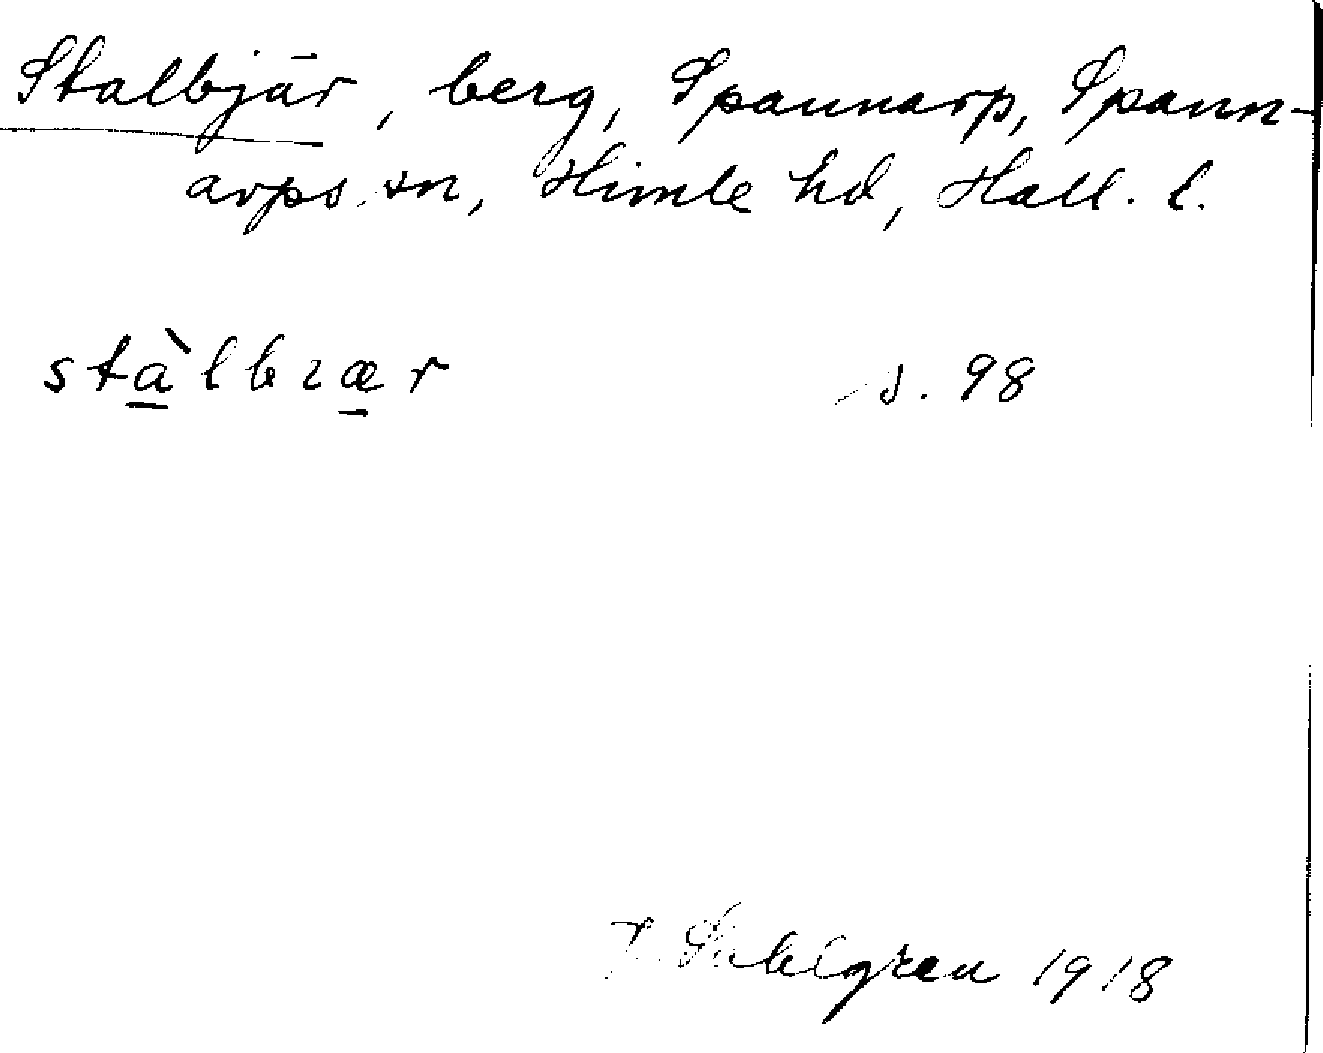 Stalbjär, berg, Spannarp, Spann-
arps sn, Himle hd, Hall. l.
stàlbɩær s. 98
J. Sahlgren 1918